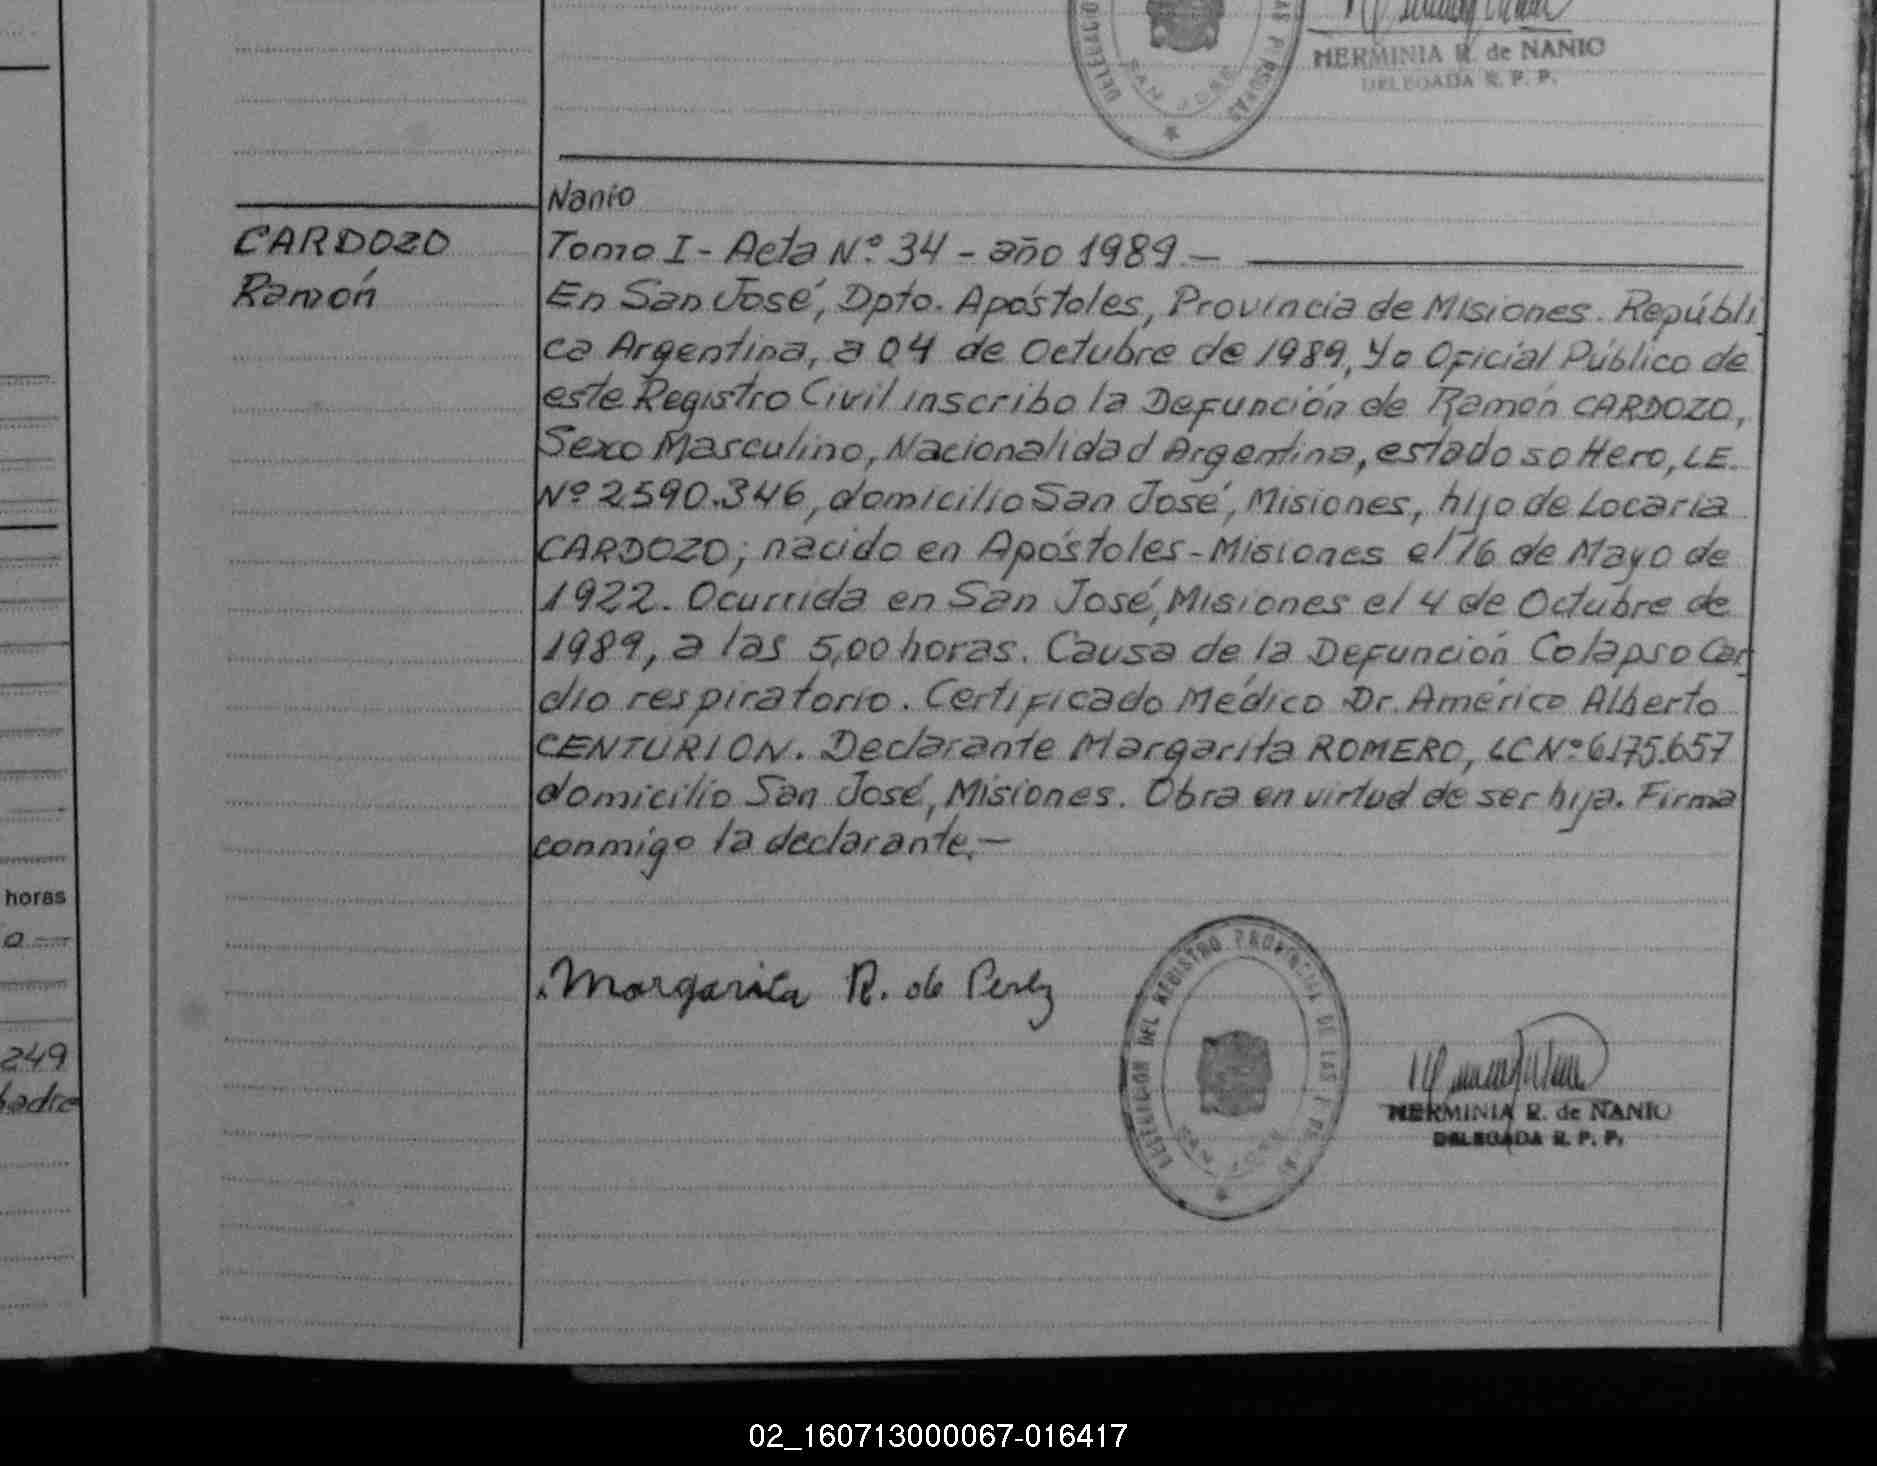 HERMINIA R. de NANIO
DELEGADA R. P. P.
SAN JOSE
Nanio
CARDOZO
Ramón
Tomo I - Acta Nº 34 - año 1989.—
En San José, Dpto. Apóstoles, Provincia de Misiones. Repúbli
ca Argentina, a 04 de Octubre de 1989, Yo Oficial Público de
este Registro Civil inscribo la Defunción de Ramón CARDOZO,
Sexo Masculino, Nacionalidad Argentina, estado soltero, L.E.
Nº 2.590.346, domicilio San José, Misiones, hijo de Locaria
CARDOZO; nacido en Apóstoles - Misiones el 16 de Mayo de
1922. Ocurrida en San José, Misiones el 4 de Octubre de
1989, a las 5,00 horas. Causa de la Defunción Colapso Car
dio respiratorio. Certificado Médico Dr. Américo Alberto
CENTURION. Declarante Margarita ROMERO, LC Nº 6.175.657
domicilio San José, Misiones. Obra en virtud de ser hija. Firma
conmigo la declarante.—
horas
Margarita R. de Perez
DELEGACION DEL REGISTRO PROVINCIAL DE LAS PERSONAS
SAN JOSE
249
HERMINIA R. de NANIO
DELEGADA R. P. P.
02_160713000067-016417